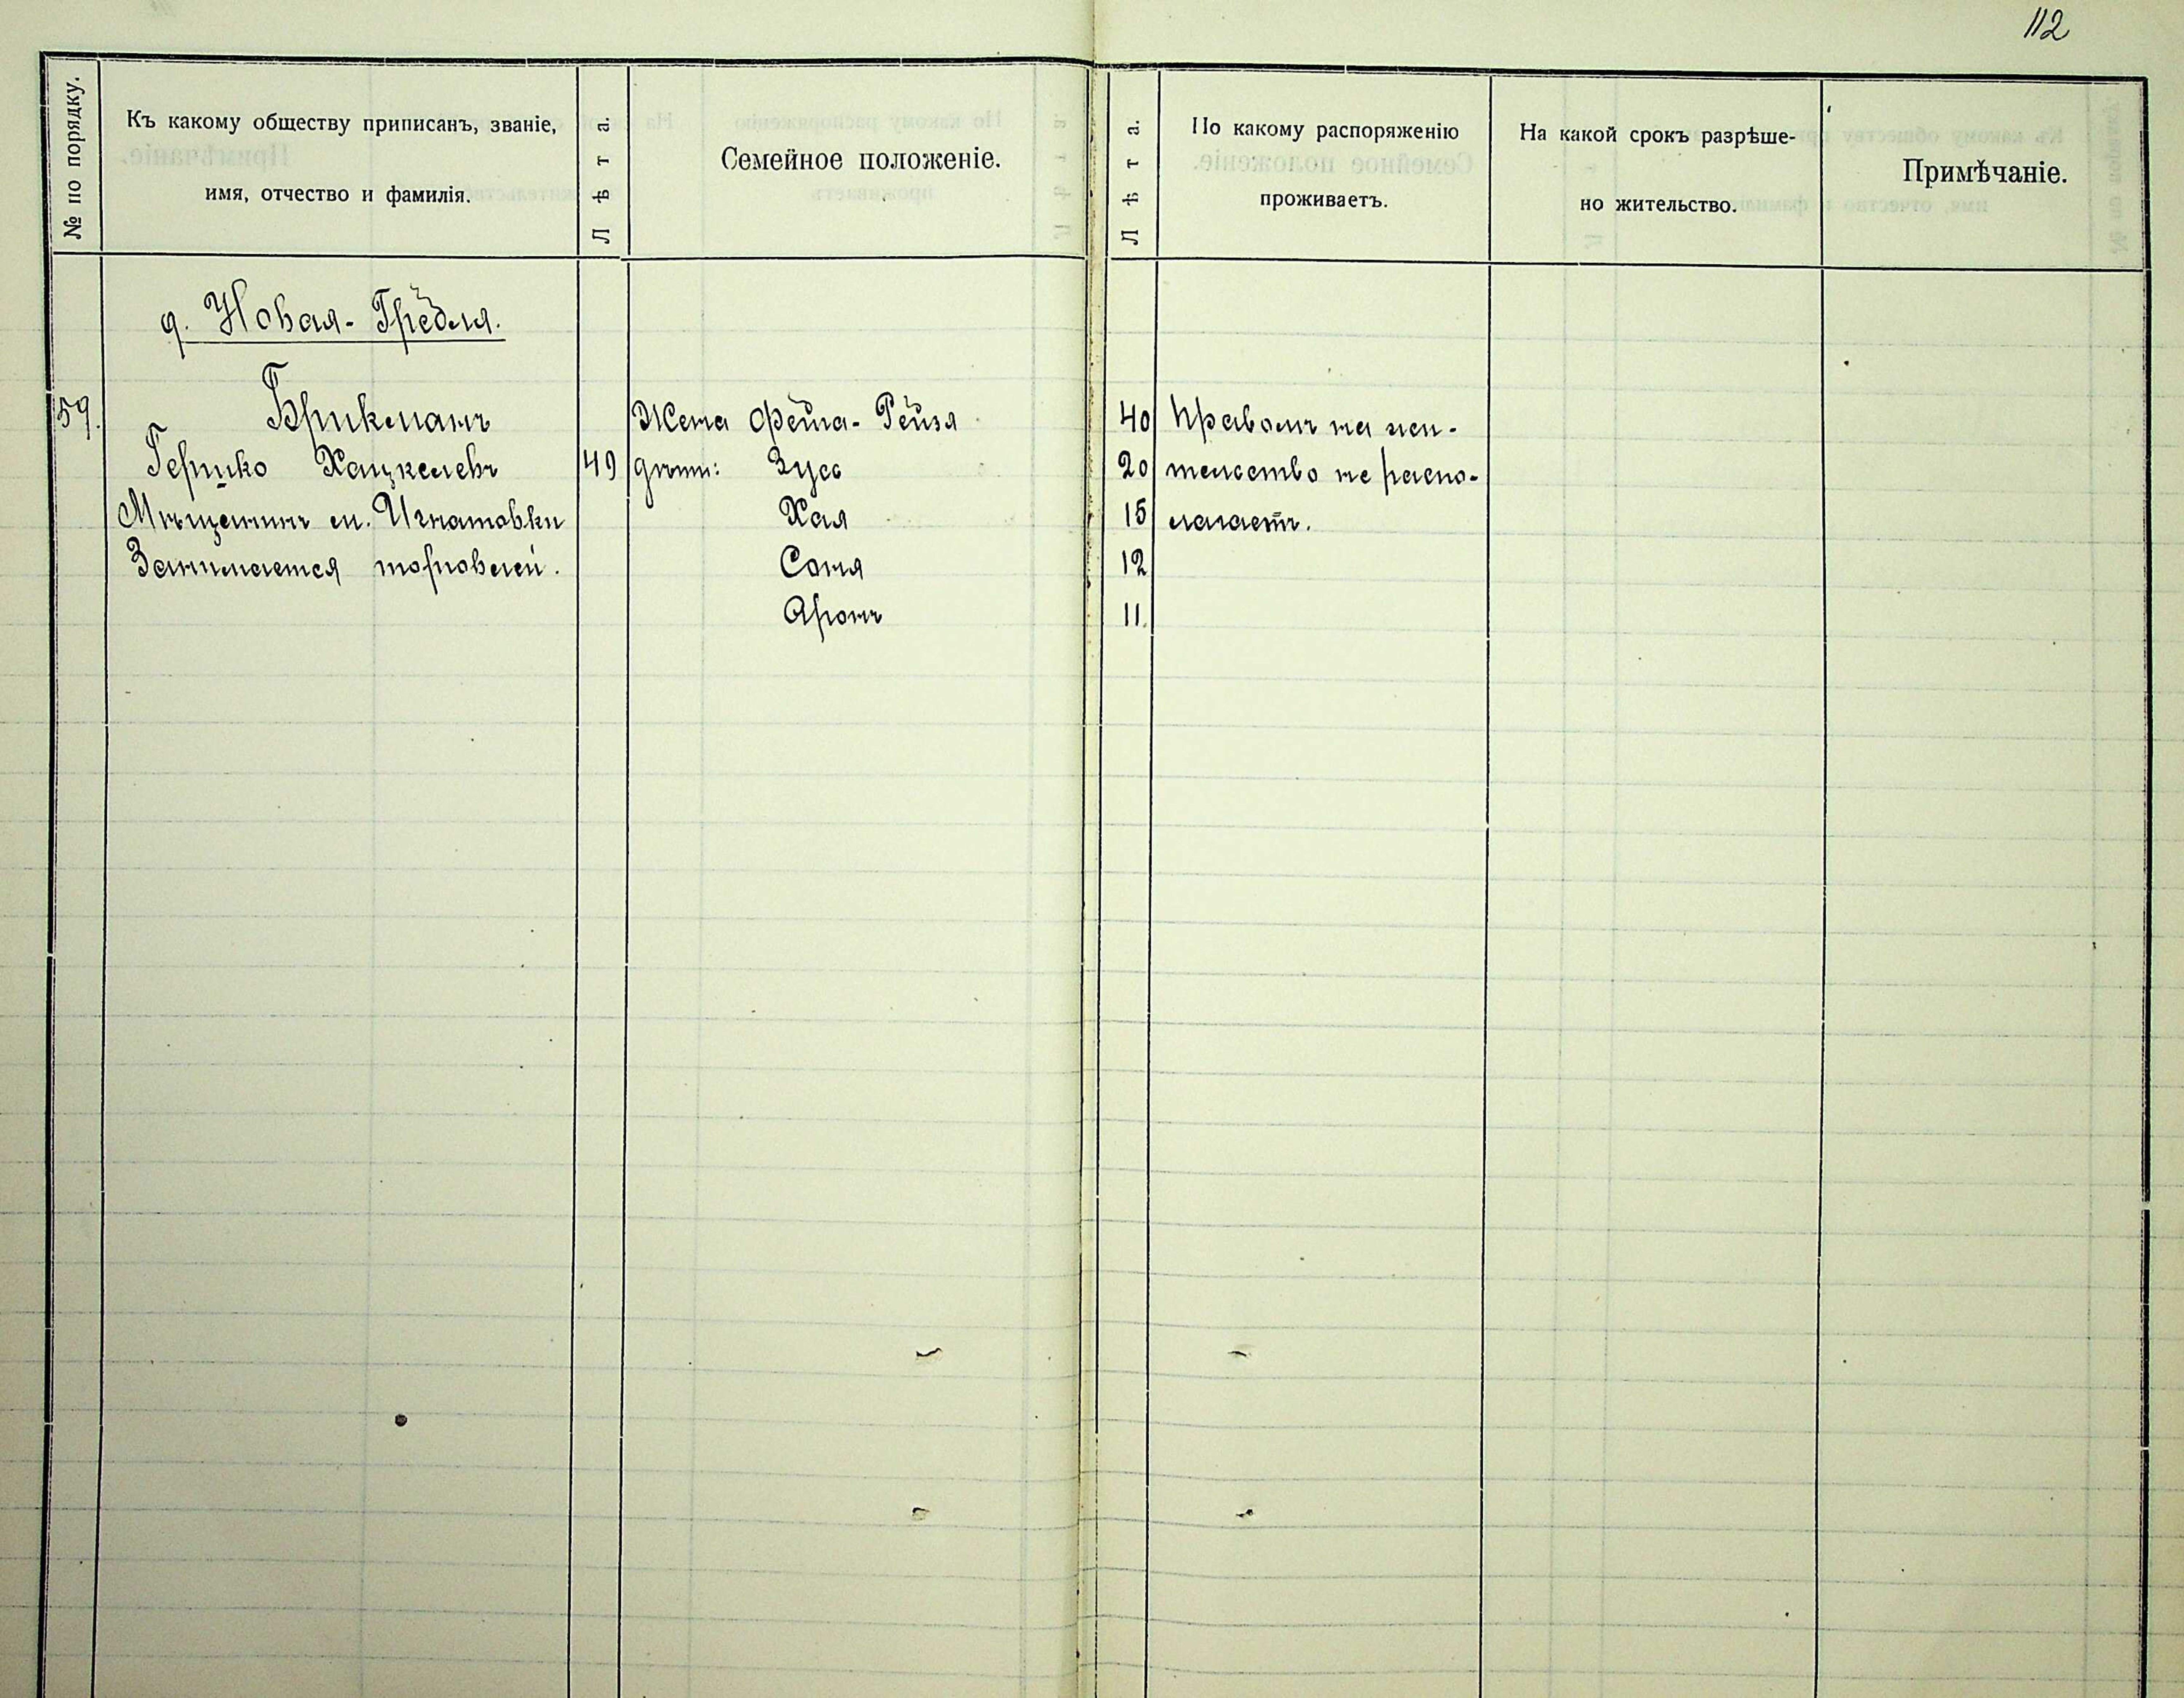 112
№ по порядку.
Къ какому обществу приписанъ, званіе,
имя, отчество и фамилія.
Лѣта.
Семейное положеніе.
Лѣта.
По какому распоряженію
проживаетъ.
На какой срокъ разрѣше-
но жительство.
Примѣчаніе.
д. Новая-Гребля.
59.
Брикманъ
Жена Фейга-Рейзя
40
Правомъ на жи-
Гершко Хацкелевъ
49
дѣти: Зусь
20
тельство не распо-
Мѣщанинъ м. Игнатовки
Хая
15
лагаетъ.
Занимается торговлей.
Соня
12
Аронъ
11.